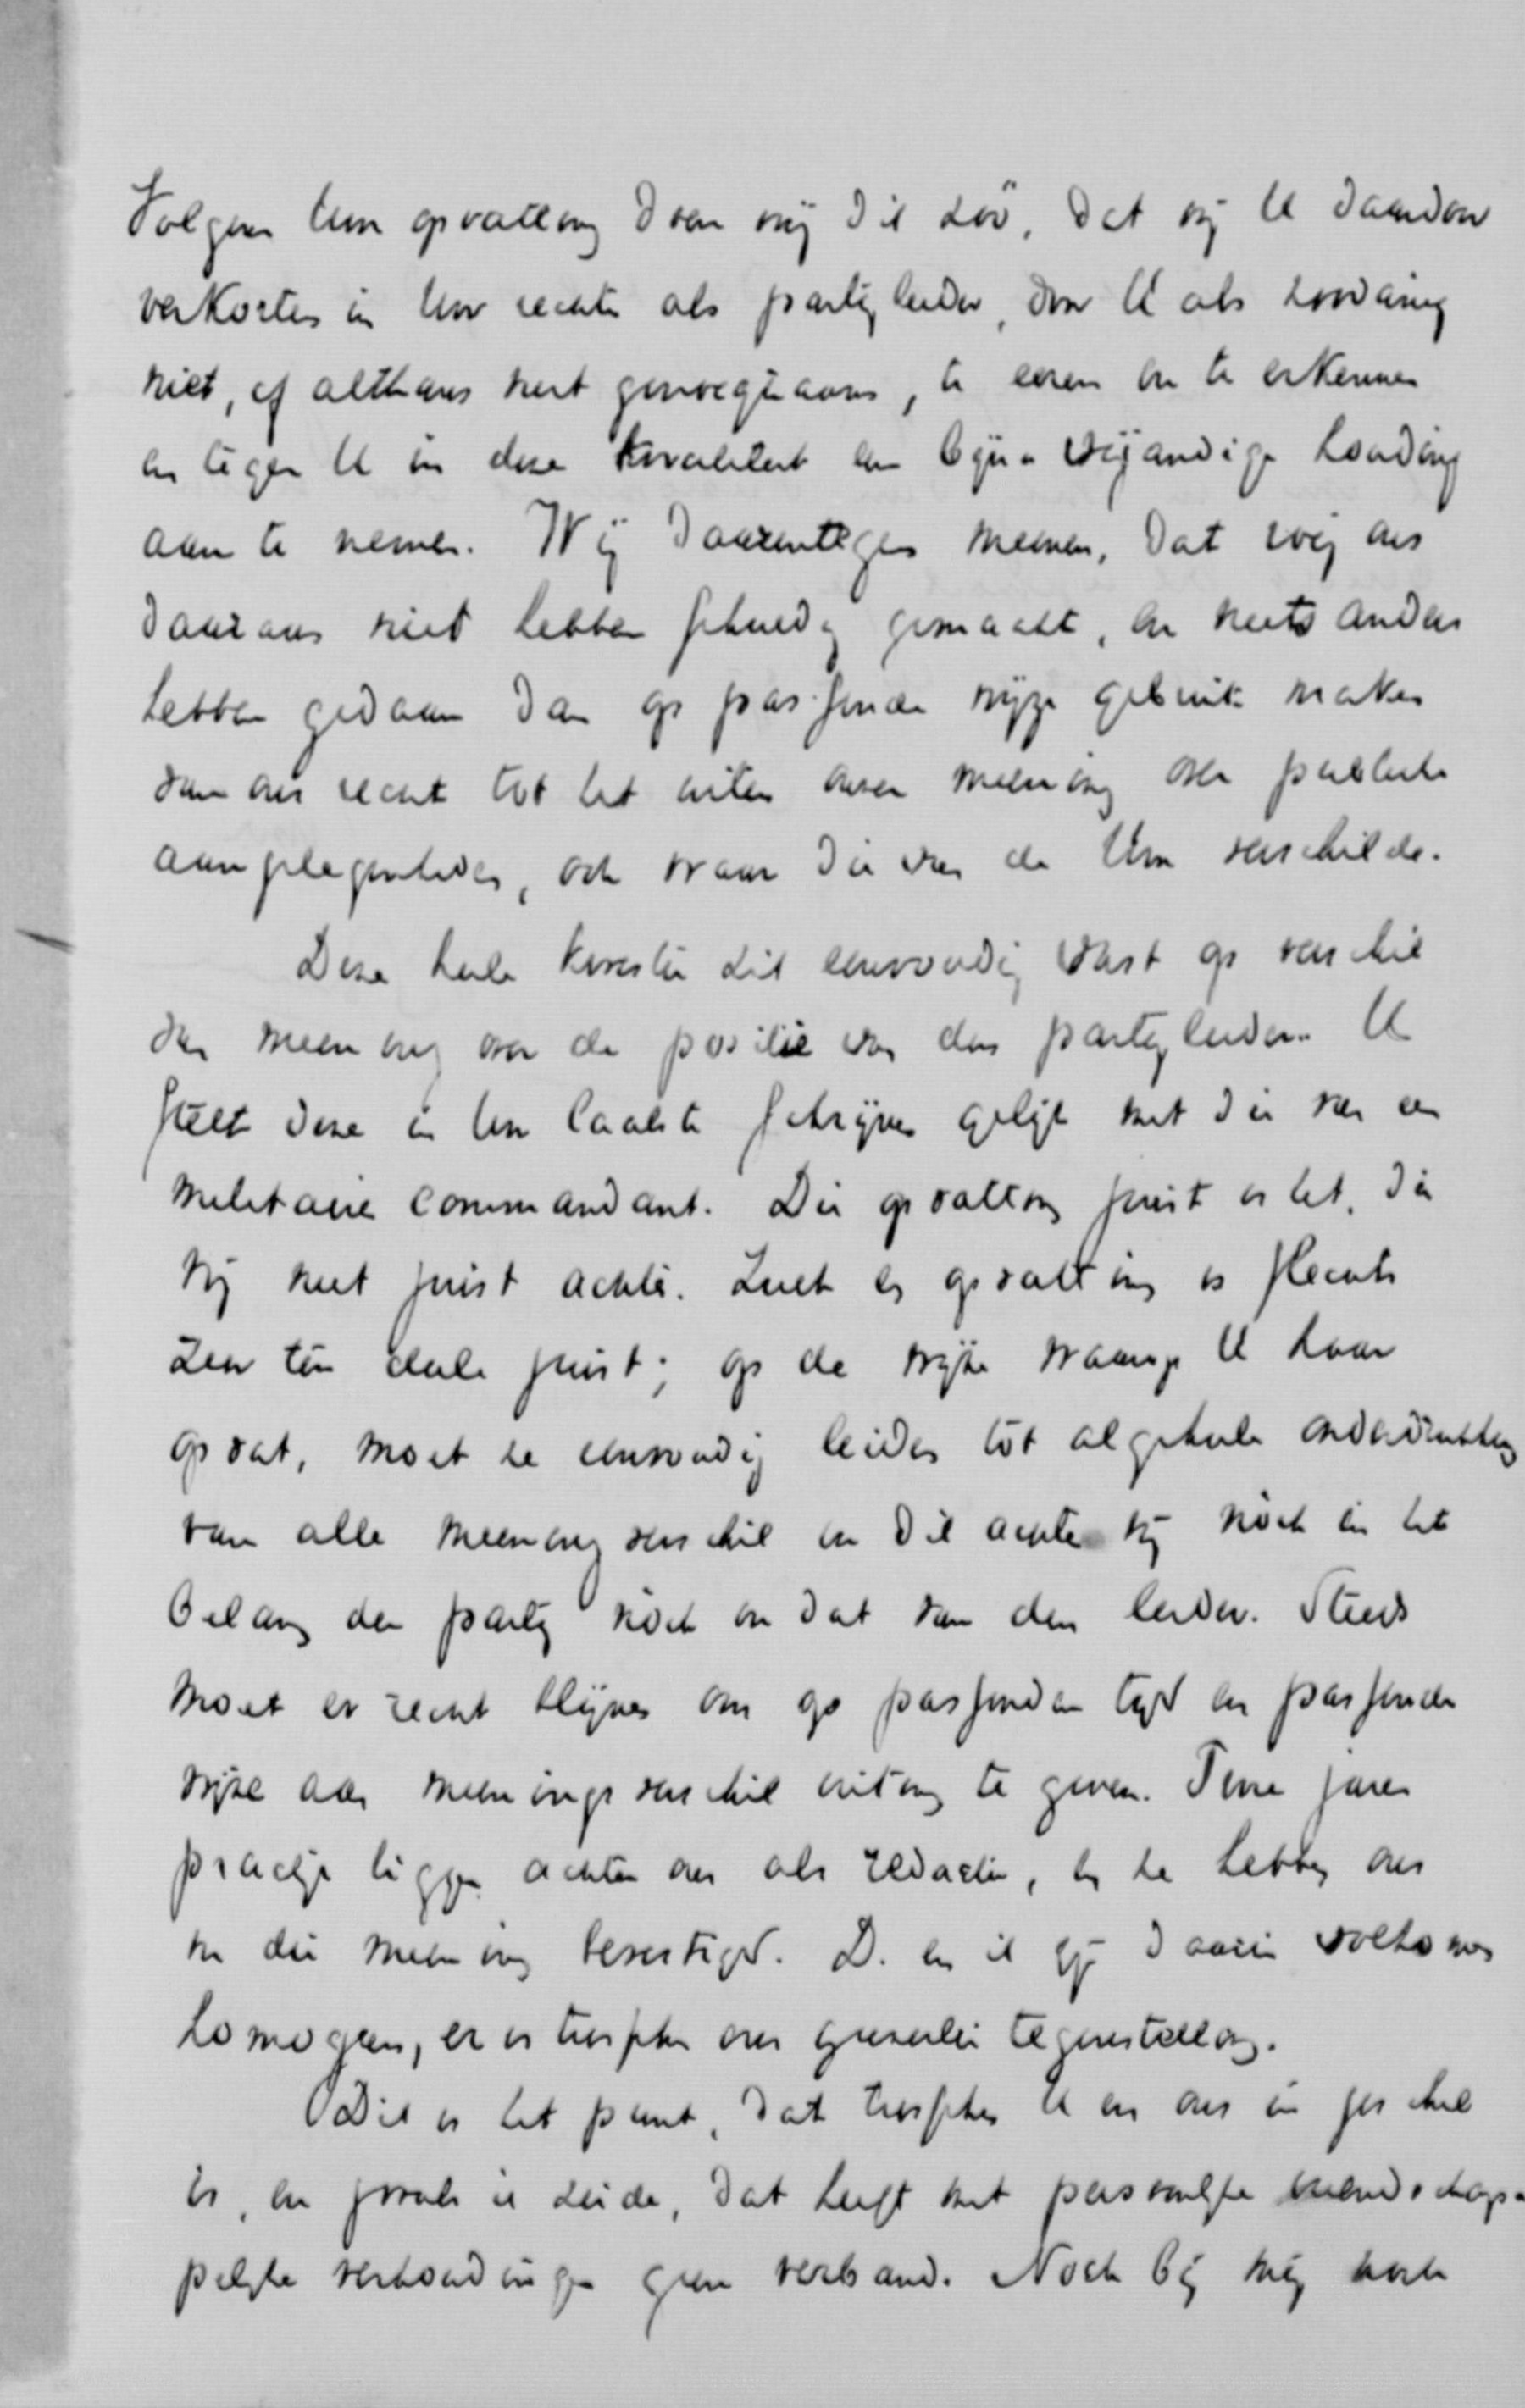 Volgens Uw opvatting doen wij dit zóó, dat wij U daardoor
verkorten in Uw rechten als partijleider, door U als zoodanig
niet, of althans niet genoegzaam, te eeren en te erkennen
en tegen U in deze kwaliteit een bijna vijandige houding
aan te nemen. Wij daarentegen meenen, dat wij ons
daaraan niet hebben schuldig gemaakt, en niets anders
hebben gedaan dan op passende wijze gebruik maken
van ons recht tot het uiten onzer meening over publieke
aangelegenheden, ook waar die van de Uwe verschilde.
Deze heele kwestie zit eenvoudig vast op verschil
van meening over de positie van den partijleider. U
stelt deze in Uw laatste schrijven gelijk met die van een
militaire commandant. Die opvatting juist is het, die
wij niet juist achten. Zulk een opvatting is slechts
zeer ten deele juist; op de wijze waarop U haar
opvat, moet ze eenvoudig leiden tot algeheele onderdrukking
van alle meeningsverschil en dit achten wij noch in het
belang der partij noch in dat van den leider. Steeds
moet er recht blijven om op passenden tijd en passende
wijze aan meeningsverschil uiting te geven. Twee jaren
practijk liggen achter ons als redactie, en ze hebben ons
in die meening bevestigd. D. en ik zijn daarin volkomen
homogeen, er is tusschen ons generlei tegenstelling.
Dit is het punt, dat tusschen U en ons in geschil
is, en zooals ik zeide, dat heeft met persoonlijke vriendschap-
pelijke verhoudingen geen verband. Noch bij mij noch